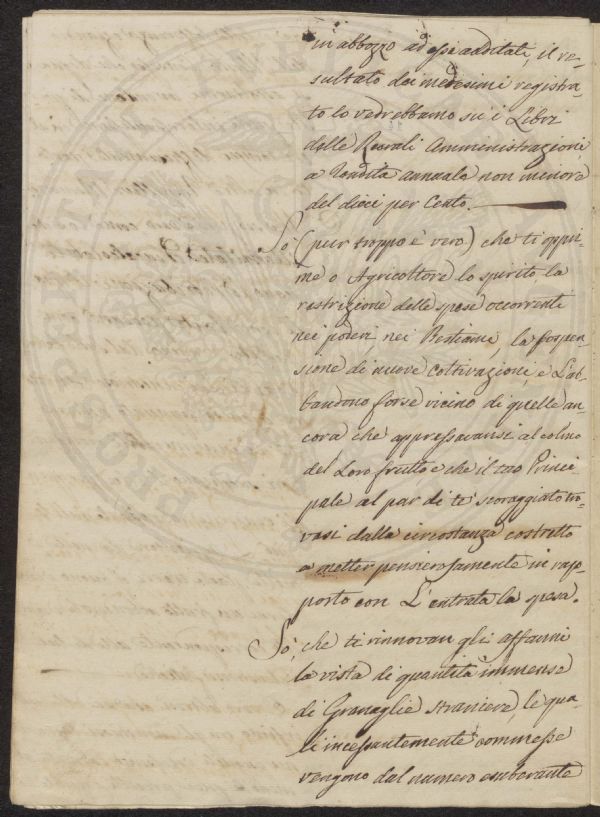 in abbozzo ad essi additati, il re-
sultato dei medesimi registra-
to lo vedrebbamo su i Libri
delle Rurali Amministrazioni
a rendita annuale non minore
del dieci per Cento.
So (pur troppo è vero) che ti oppri-
me o Agricoltore lo spirito, la
restrizione delle spese occorrenti
nei poderi, nei Bestiami, la sospen-
sione di nuove coltivazioni, e L'ab-
bandono forse vicino di quelle an-
cora che appressavansi al colmo
del Loro frutto e che il tuo Princi
pale al par di te scoraggiato tro-
vasi dalla circostanza costretto
a metter pensierosamente in rap-
porto con L'entrata la spesa.
So, che ti rinnovan gli affanni
la vista di quantità immense
di Granaglie straniere, le qua-
li incessantemente commesse
vengono dal numero esuberante